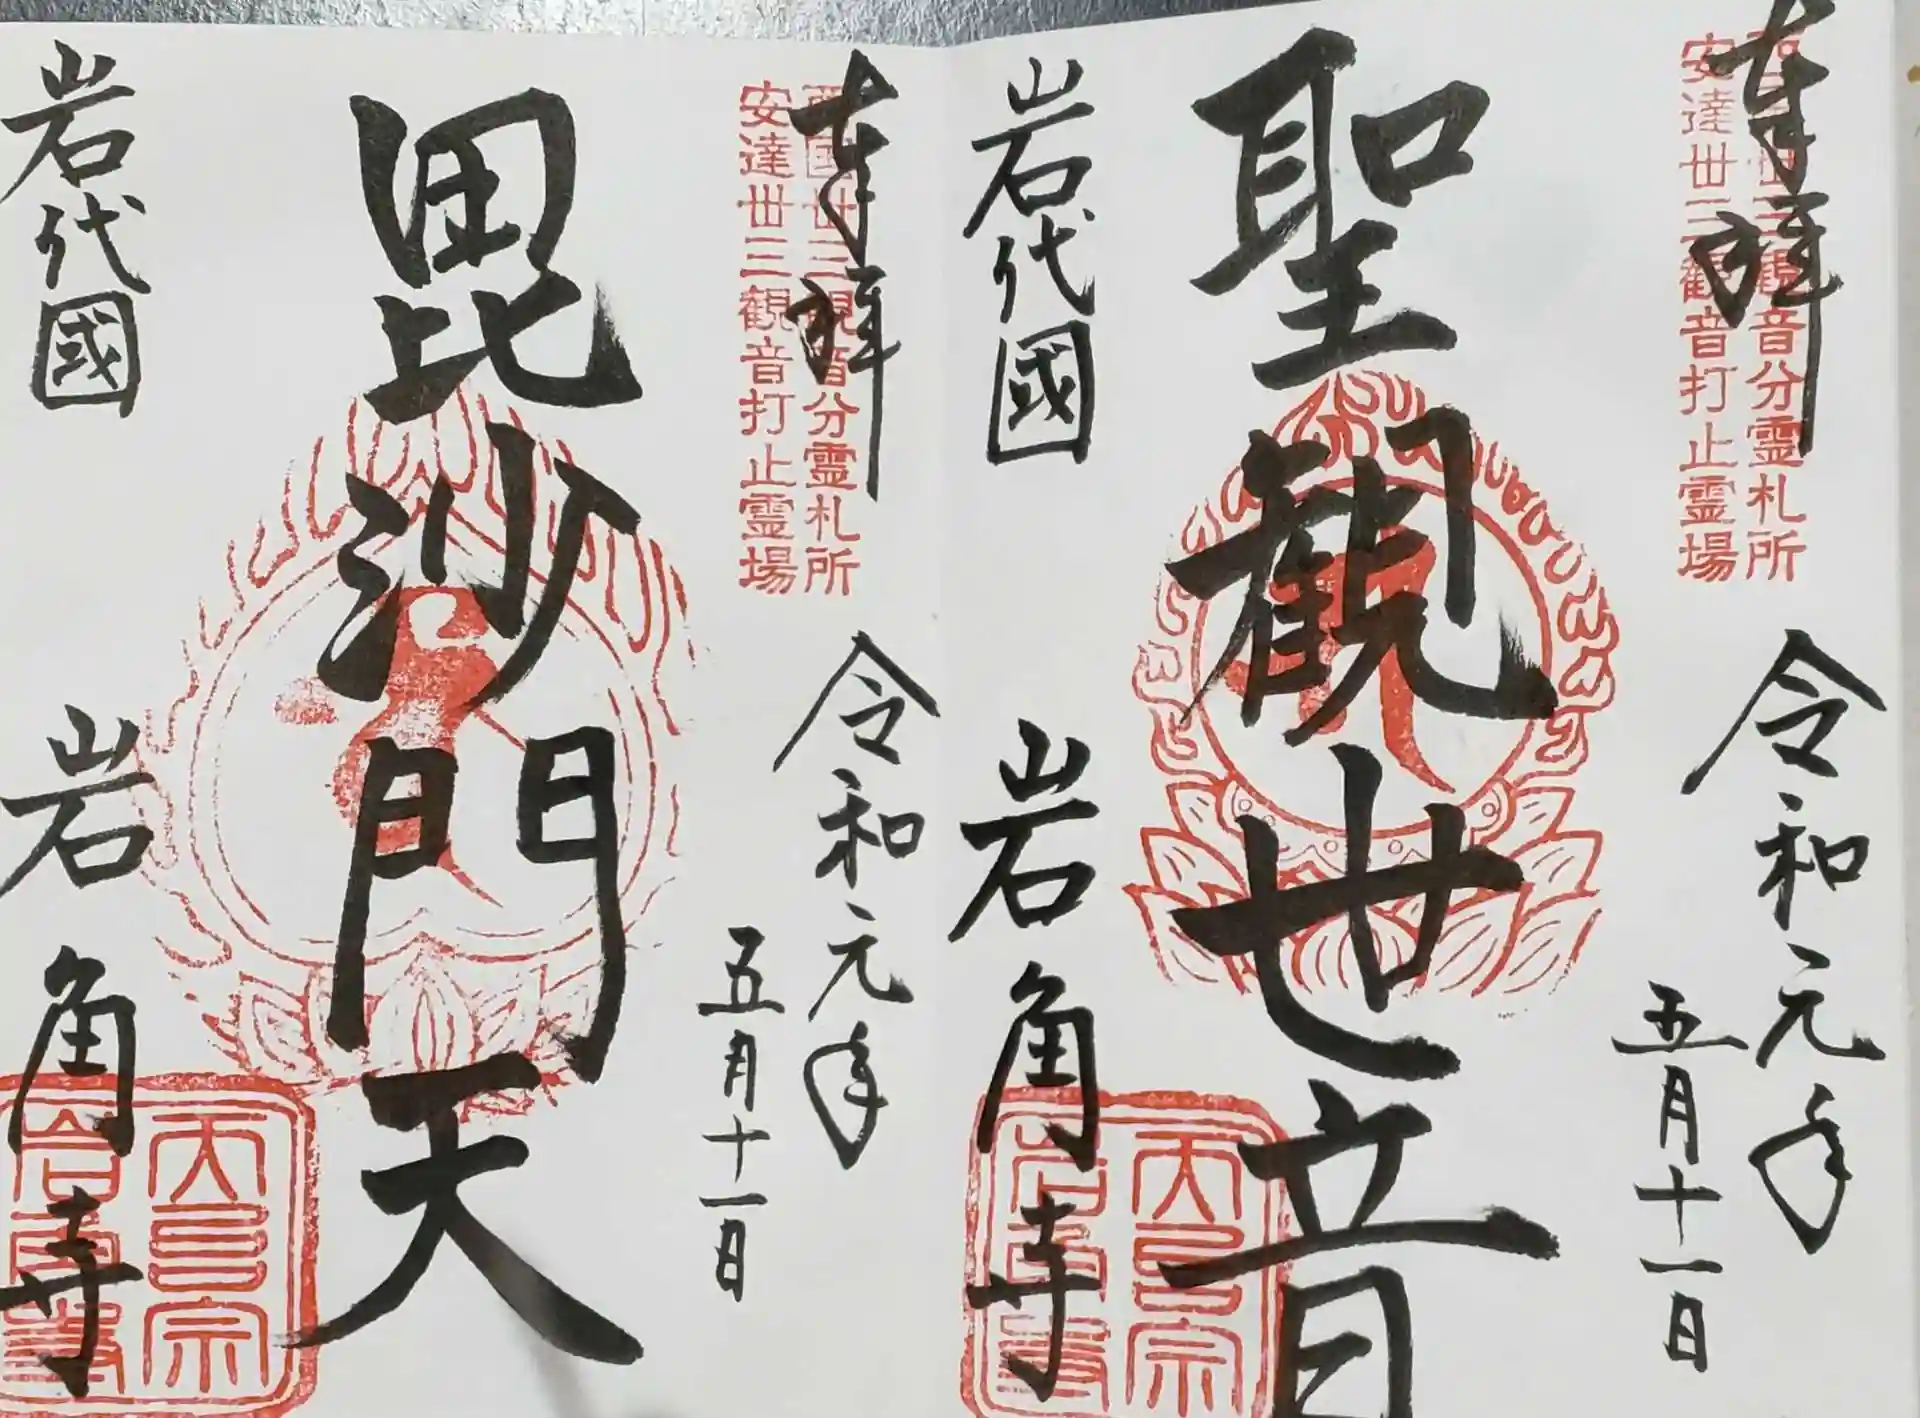 奉拝
西國丗三観音分霊札所
安達丗三観音打止霊場
令和元年
五月十一日
聖観世音
岩代國
岩角寺
天台宗
奉拝
西國丗三観音分霊札所
安達丗三観音打止霊場
令和元年
五月十一日
毘沙門天
岩代國
岩角寺
天台宗